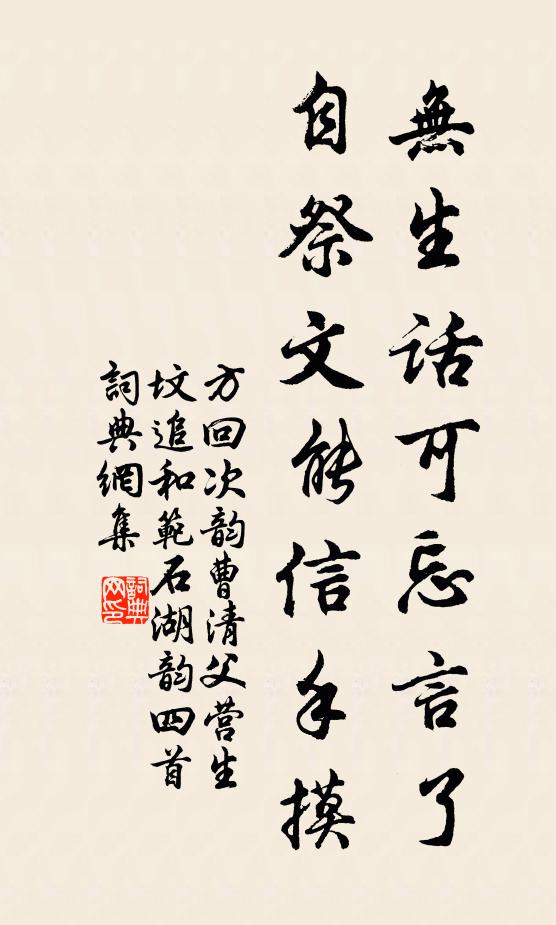 無生話可忘言了
自祭文能信手摸
方回次韵曹清父营生
坟追和範石湖韵四首
詞典網集
詞典網印